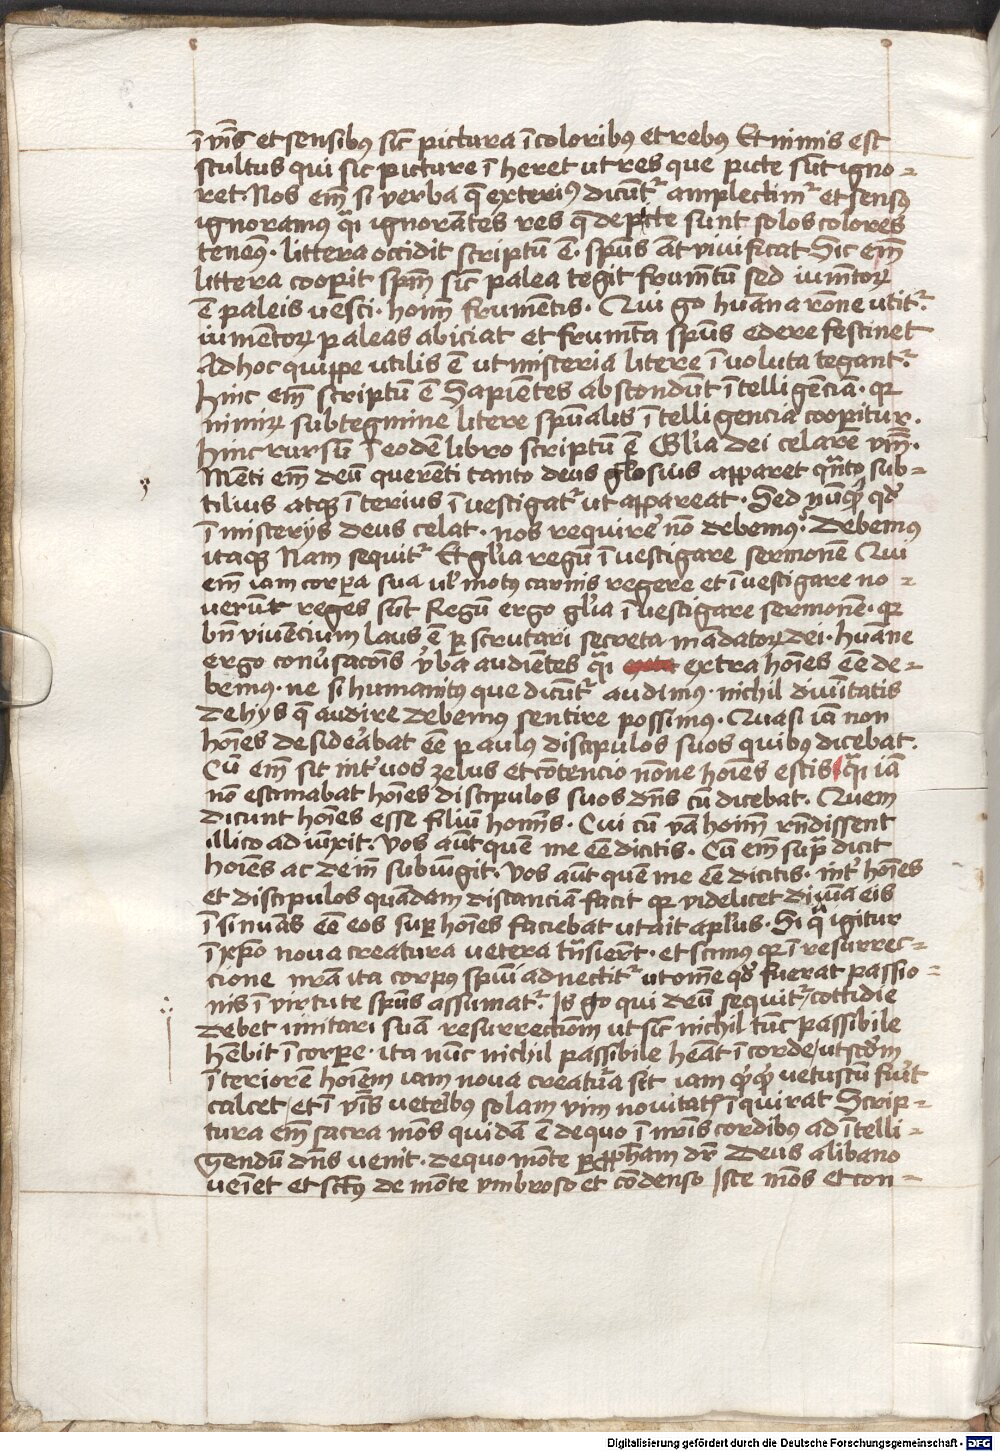 ī vb̄is et sensibꝰ sic̄ pictura ī coloribꝰ et rebꝰ Et nimis est
stultus qui sic picture ī heret ut res que picte sūt igno-
ret. Nos em̄ si verba q̄ exteriꝰ dicūtᷣ amplectimᷣ et sensꝰ
ignoramus q̄i ignorātes res q̄ depicte sunt solos colores
tenemꝰ. littera occidit scriptū ē. spūs āt vivificat Sic em̄
littera cooperit spm̄ sic̄ palea tegit frum̄tū sed ium̄toꝝ
ē paleis vesci. hoīm frumētis. Qui gͦ huāna rōne utitᷣ
iumētoꝝ paleas abiciat et frum̄ta spūs edere festinet
Ad hoc quippe utilis ē ut misteria litere ī voluta tegantᷣ
hinc em̄ scriptū ē Sapiētes abscondūt ītelligēciā. qꝛ
nimiꝝ subtegmine litere spūalis ītelligencia cooperitur.
hinc rursū ī eodē libro scriptū ē Gl̄ia dei celare vb̄m.
Mēti em̄ deū querēti tanto deus gl̄osius apparet qn̄to sub-
tilius atqꝫ īterius īvestigatᷣ ut appareat. Sed nūqꝫ qd̓
ī misterijs deus celat. nos requirē nō debemꝰ. Debemus
itaqꝫ Nam sequitᷣ Et gl̄ia regū īvestigare sermonē Qui
em̄ iam corpora sua vl̓ motꝰ carnis regere et īvestigare no-
verūt reges sūt Regū ergo gl̄ia īvestigare sermonē. qꝛ
bn̄ viuēcium laus ē ꝑscrutari secreta mādatoꝝ dei. huāne
ergo conv̓sacōis v̓ba audiētes q̄i extra hoīes eē de-
bemꝰ. ne si humanitꝰ que dicūtᷣ audimꝰ. nichil diviītatis
de hijs q̄ audire debemꝰ sentire possimꝰ. Quasi iā non
hoīes desidēabat eē paulꝰ discipulos suos quibꝰ dicebat.
Cū em̄ sit int̓ vos zelus et cōtencio nōne hoīes estis q̄i iā
nō estimabat hoīes discipulos suos dn̄s cū dicebat. Quem
dicunt hoīes esse filiū hoīs. Cui cū v̓ba hoim̄ rn̄dissent
illico adiūxit. Vos aūt quē me eē dicitis. Cū em̄ supᷓ dicit
hoīes ac deīn subiūgit. Vos aūt quē me eē dicitis. int̓ hoīes
et discipulos quādam distanciā facit qꝛ videlicet divīa eis
īsinuās eē eos suꝑ hoīes faciebat ut ait apl̄us. Si qᷓ igitur
ī xp̄o nova creatura vetera tn̄sierūt. et scimus qꝛ ī resurrec-
cione nr̄ā ita corpꝰ spūi adnectitᷣ ut om̄e qd̓ fuerat passio-
nis ī virtute spūs assumatᷣ. Is gͦ qui deū sequitᷣ cottidie
debet imitari suā resurrectiom̄ ut sic̄ nichil tūc passibile
hēbit ī corpore. ita nūc nichil passibile hēat ī corde/ ut scd̄m
īteriorē hoīem iam nova creatura sit iam qͥcqͥd vetustū fu̓it
calcet/ et ī vb̄is vetēibꝰ solam vim novitatis īquirat Scrip-
tura em̄ sacra mōs quidā ē de quo ī nr̄is cordibꝰ ad ītelli-
gendū dn̄s venit. de quo mōte ꝑ ꝓpham dr̄ Deus a libano
veiet et sctūs de mōte vmbroso et cōdenso Iste mōs et con-
Digitalisierung gefördert durch die Deutsche Forschungsgemeinschaft - DFG